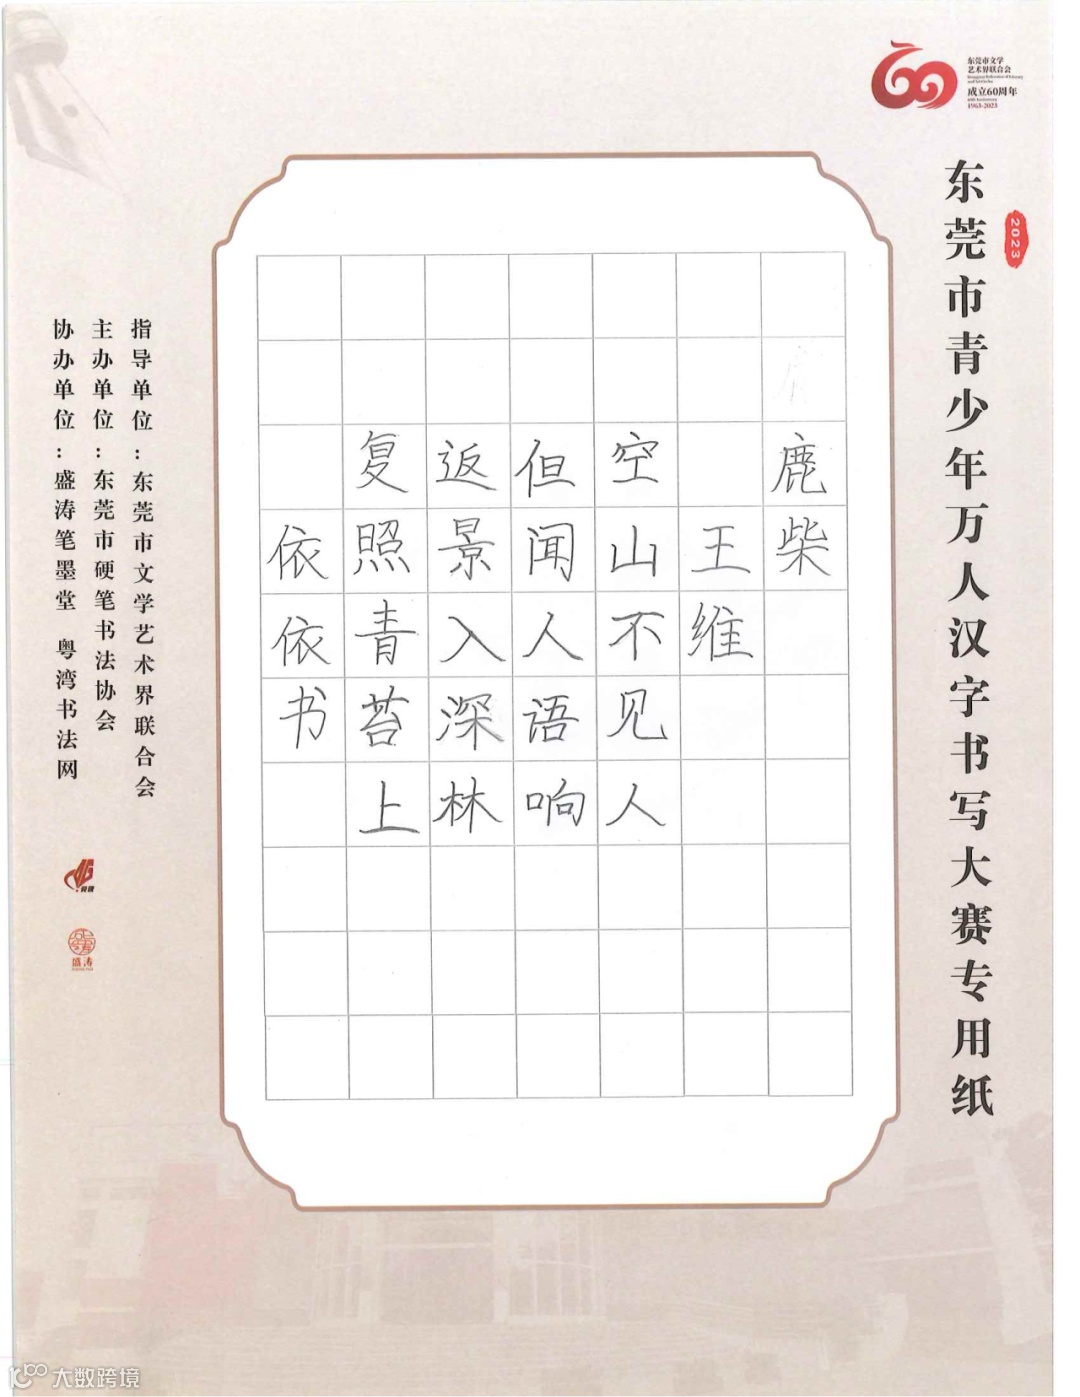 东莞市文学
艺术界联合会
成立60周年
1963-2023
2023
东莞市青少年万人汉字书写大赛专用纸
鹿柴
王维
空山不见人
但闻人语响
返景入深林
复照青苔上
依依书
指导单位：东莞市文学艺术界联合会
主办单位：东莞市硬笔书法协会
协办单位：盛涛笔墨堂 粤湾书法网
盛涛
大数跨境